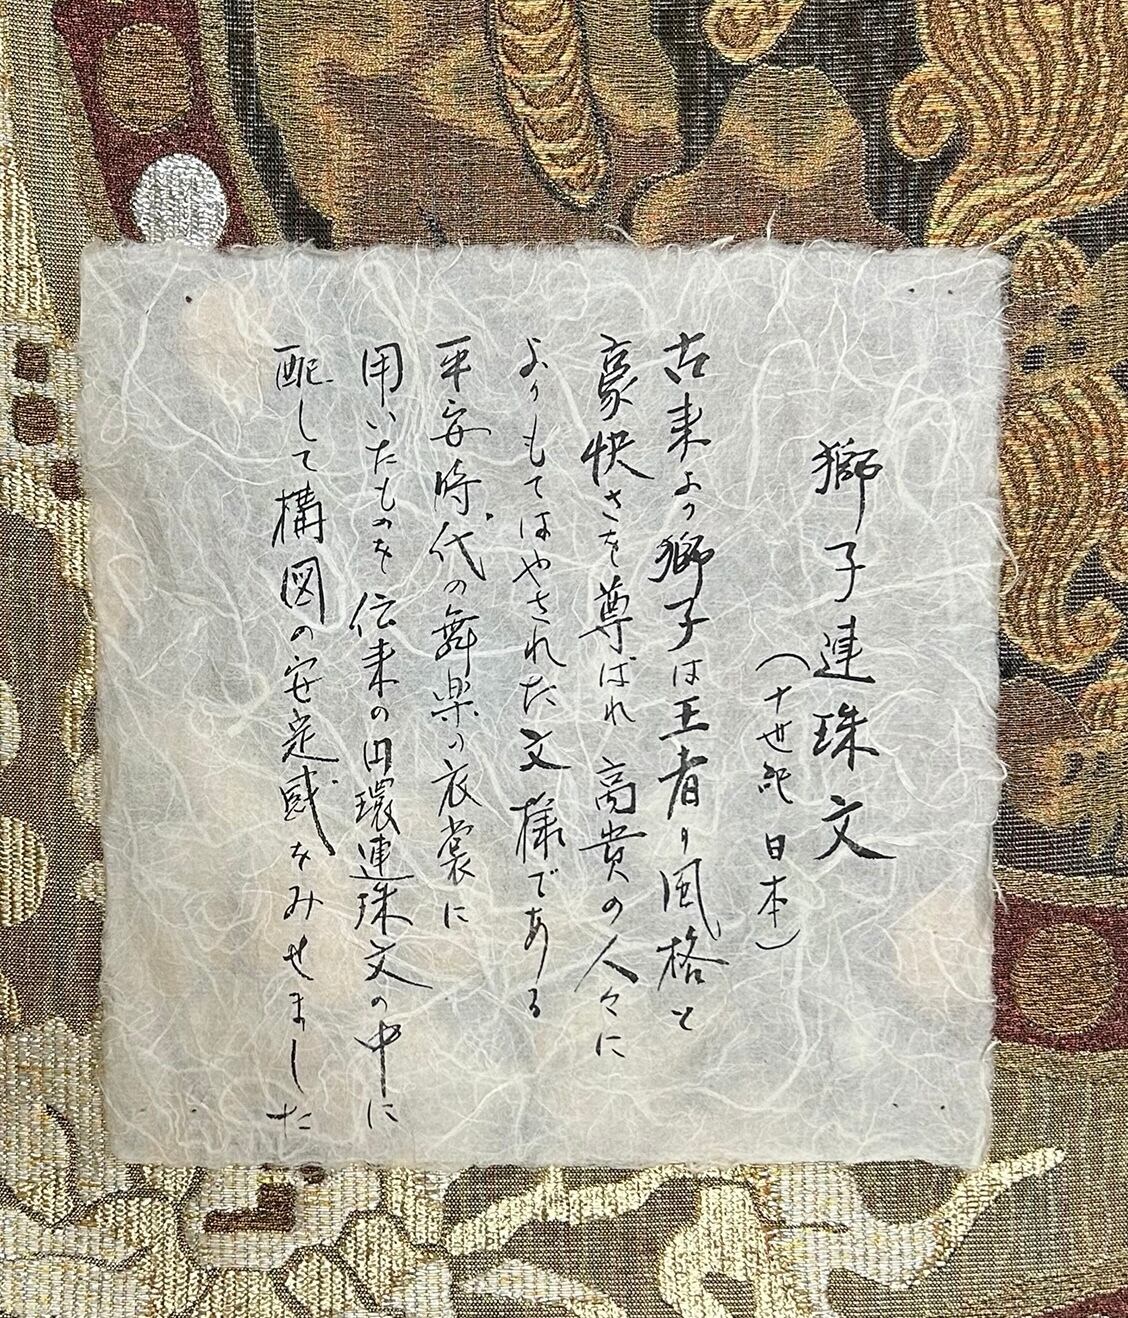 獅子連珠文
(十世紀 日本)
古来より獅子は王者の風格と
豪快さを尊ばれ 高貴の人々に
よりもてはやされた文様である
平安時代の舞楽の衣裳に
用いたものを伝来の円環連珠文の中に
配して構図の安定感をみせました